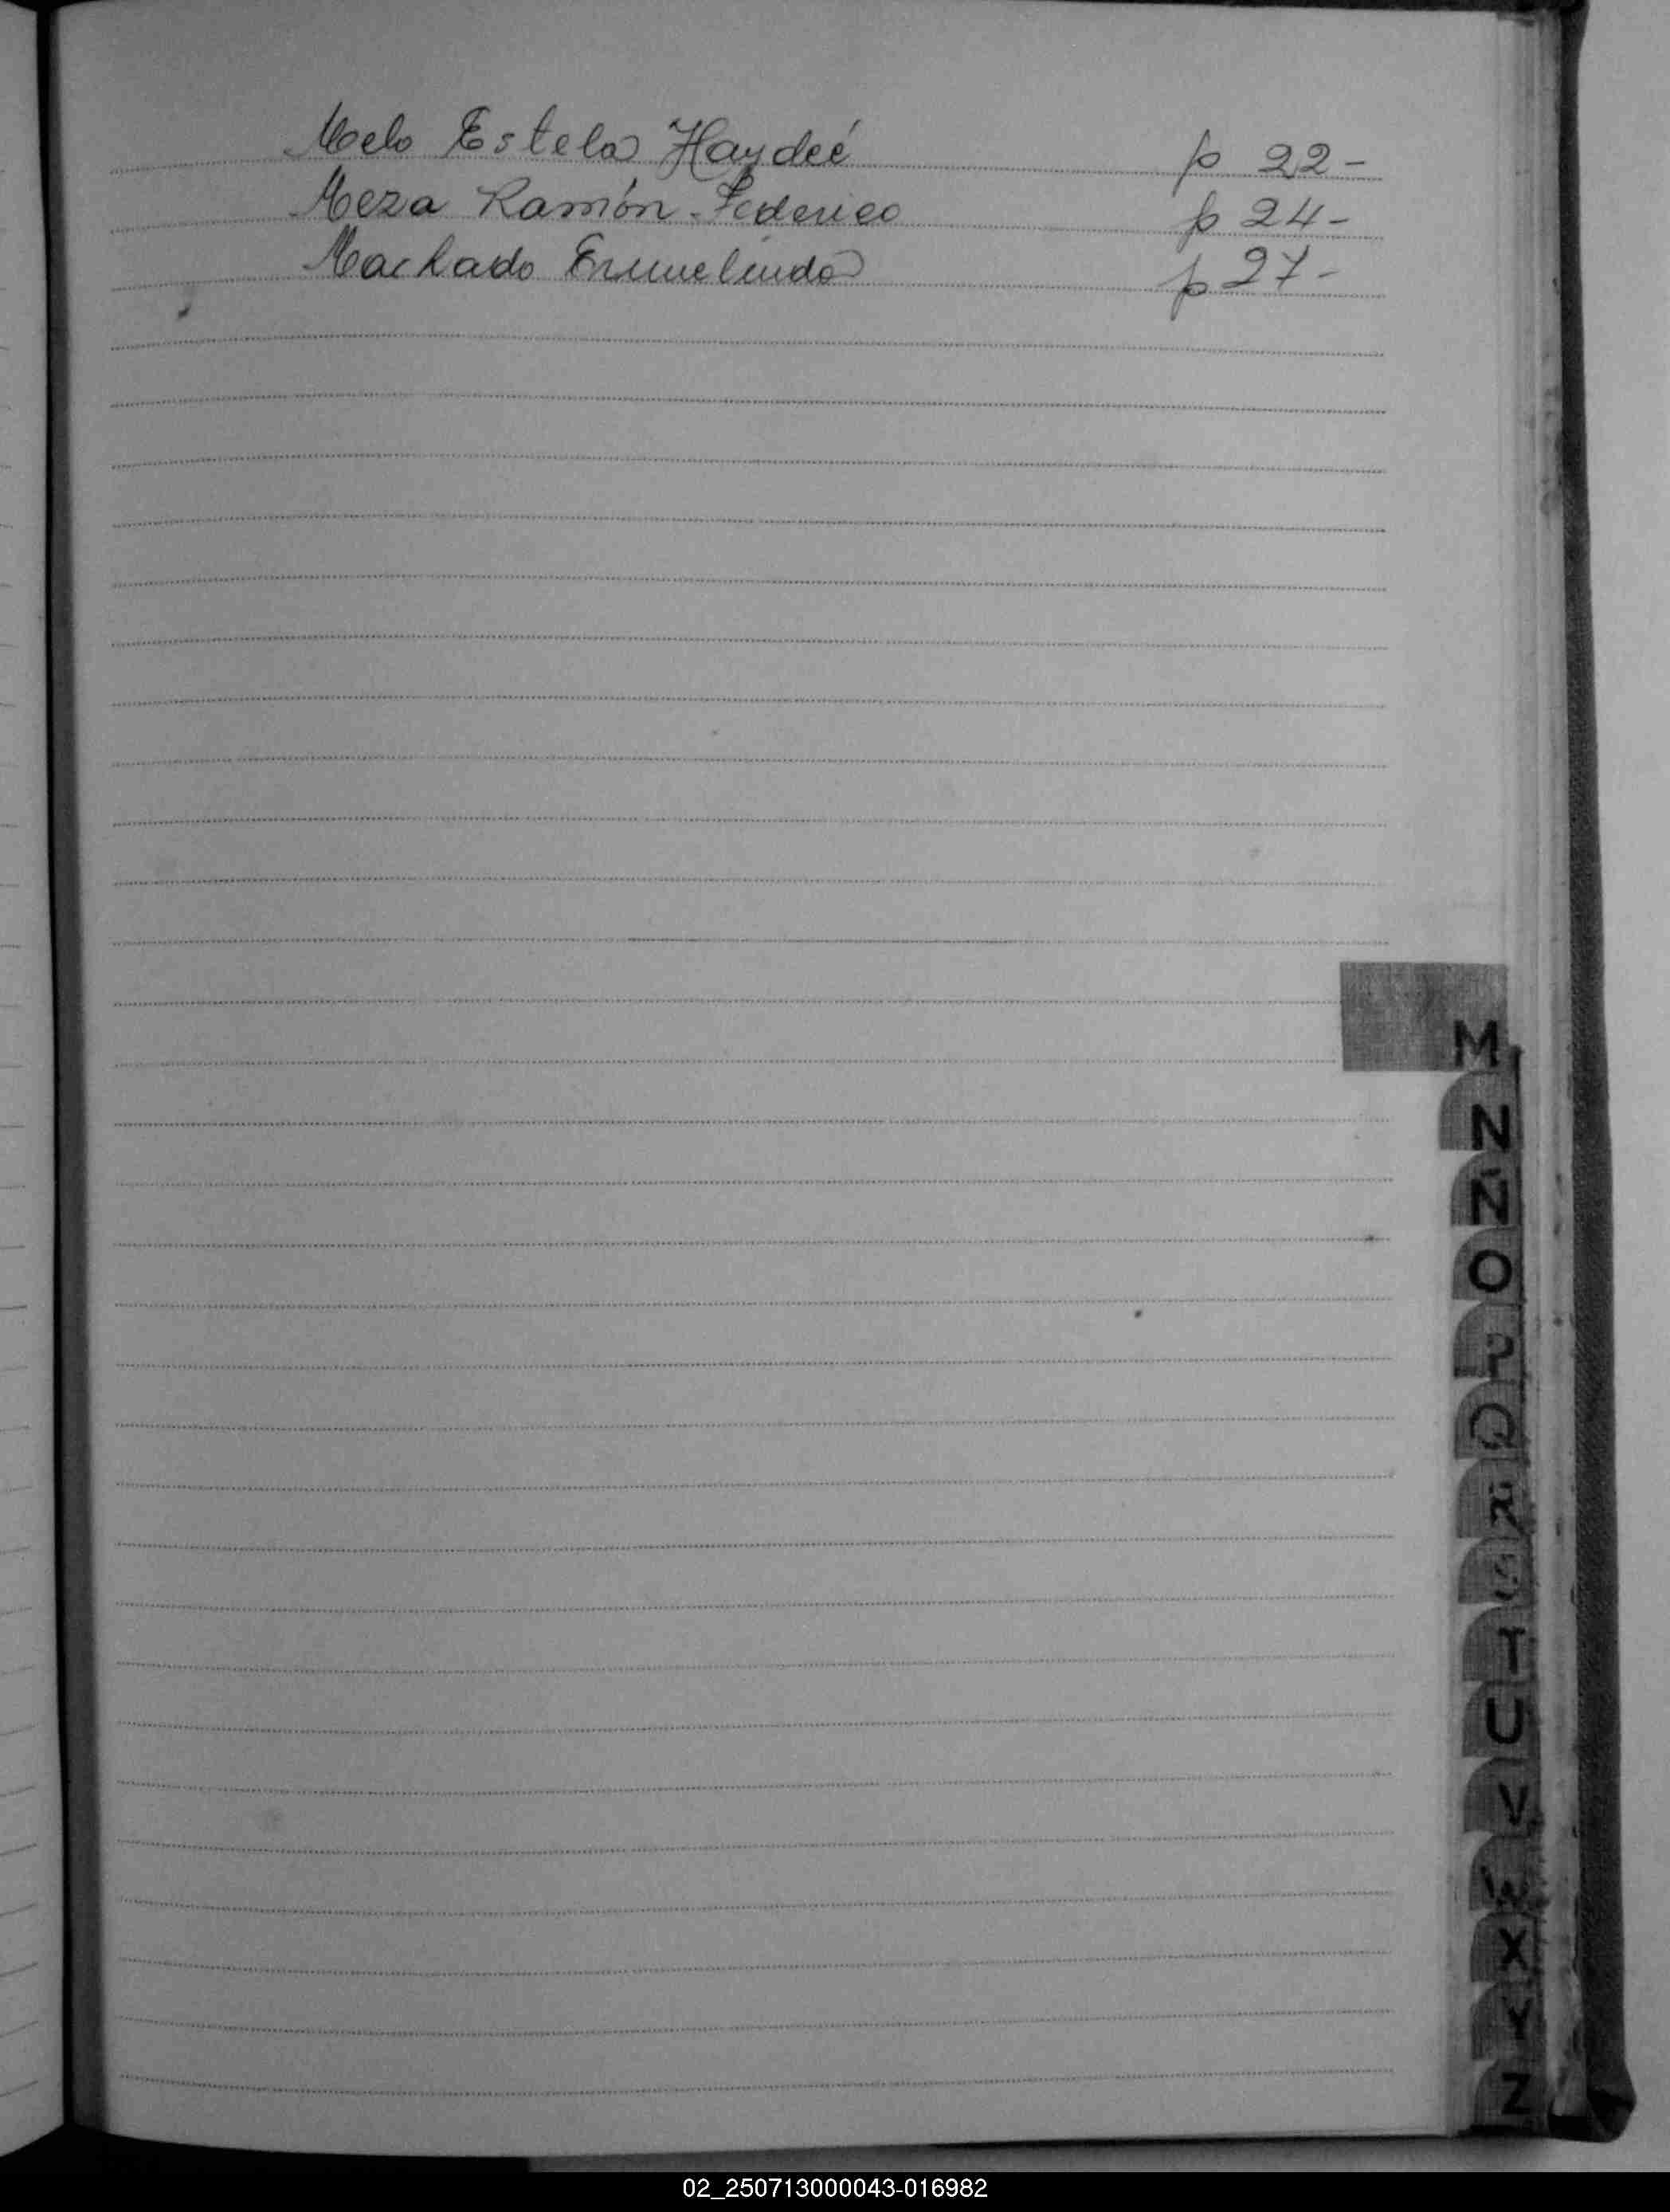 Melo Estela Haydeé p 22-
Meza Ramón Federico p 24-
Machado Ermelinda p 27-
M
N
Ñ
O
P
Q
R
S
T
U
V
W
X
Y
Z
02_250713000043-016982